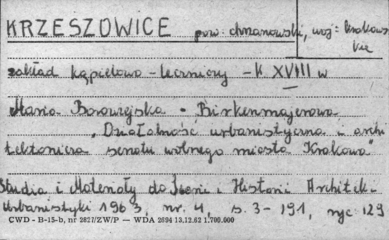 KRZESZOWICE pow. chrzanowski, woj. krakows
kie
zakład kąpielowo-leczniczy - k. XVIII w
Maria Borowiejska - Birkenmajerowa
"Działalność urbanistyczna i archi
tektoniczna senatu wolnego miasta Krakowa"
Studia i Materiały do Teorii i Historii Architek. i
Urbanistyki 1963, nr. 4, s. 3-191, ryc 129
CWD - B-15-b, nr 2827/ZW/P — WDA 2694 13.12.62 1.700.000